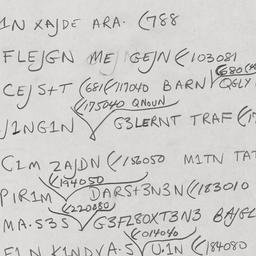 1N XAJDE ARA. (788
FLEJGN ME GEJN (103081
CEJS+T (681(/117040 BARN QGLY
(680
(175040 QNOUN
J1NG1N G3LERNT TRAF (1
C1M ZAJDN (/158050 M1TN TAT
(194050
P1R1M DARS+3N3N (/183010
(220080
MA.S3S G3FL8OXT3N3 BAJGL
(/014040
F1N K1NDVA.S U.1N (/184080